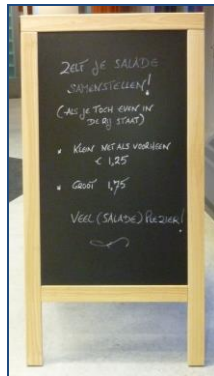 ZELF JE SALADE
SAMENSTELLEN!
(ALS JE TOCH EVEN IN
DE RIJ STAAT)
* KLEIN NET ALS VOORHEEN
€ 1,25
* GROOT 1,75
VEEL (SALADE) PLEZIER!